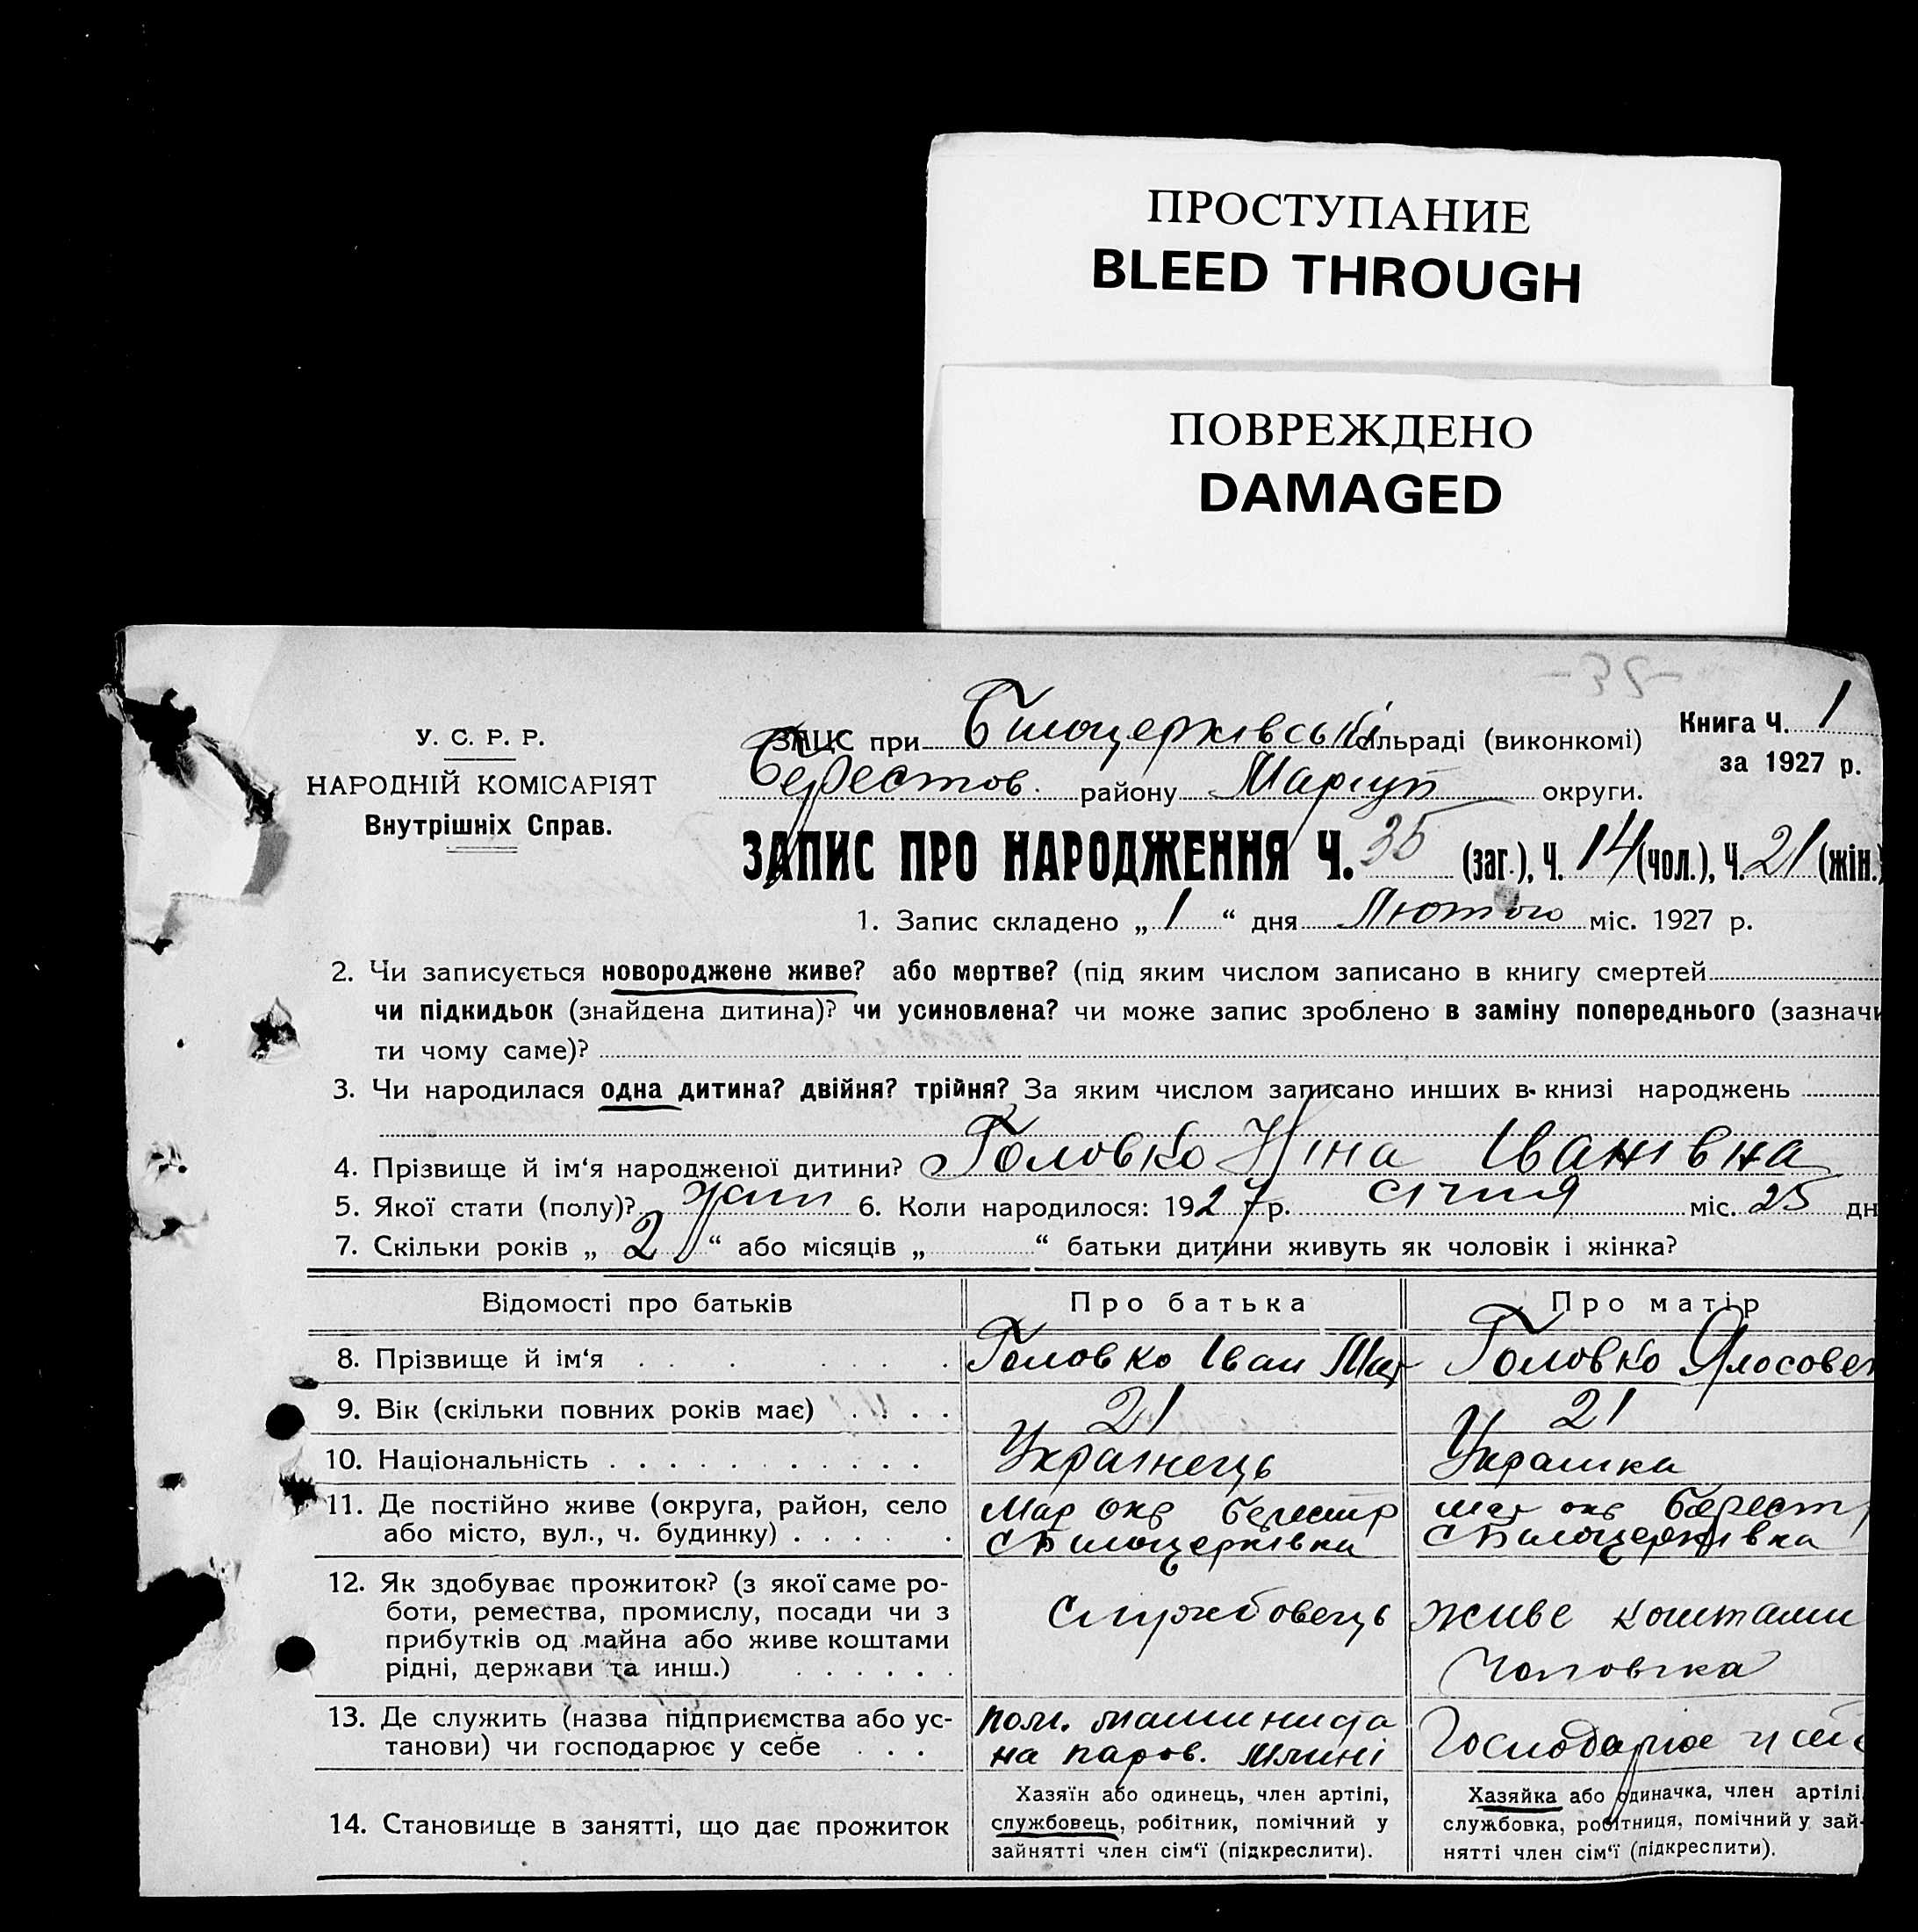 ПРОСТУПАНИЕ
BLEED THROUGH
ПОВРЕЖДЕНО
DAMAGED
У. С. Р. Р.
НАРОДНІЙ КОМІСАРІЯТ
Внутрішніх Справ.
ЗАЦС при Білоцерківській сільраді (виконкомі)
Книга Ч. 1
за 1927 р.
Берестов. району Маріуп округи.
ЗАПИС ПРО НАРОДЖЕННЯ Ч. 35 (заг.), Ч. 14 (чол.), Ч. 21 (жін.)
1. Запис складено „ 1 “ дня Лютого міс. 1927 р.
2. Чи записується новороджене живе? або мертве? (під яким числом записано в книгу смертей
чи підкидьок (знайдена дитина)? чи усиновлена? чи може запис зроблено в заміну попереднього (зазначи
ти чому саме)?
3. Чи народилася одна дитина? двійня? трійня? За яким числом записано инших в книзі народжень
4. Прізвище й ім‘я народженої дитини? Головко Ніна Іванівна
5. Якої стати (полу)? жін 6. Коли народилося: 1927 р. січня міс. 25 дн
7. Скільки років „ 2 “ або місяців „ “ батьки дитини живуть як чоловік і жінка?
Відомості про батьків
Про батька
Про матір
8. Прізвище й ім‘я
Головко Іван Мат
Головко
9. Вік (скільки повних років має)
21
21
10. Національність
Українець
Українка
11. Де постійно живе (округа, район, село
або місто, вул., ч. будинку)
Мар окр Берест р
с Білоцерківка
Мар окр Берест р
с Білоцерківка
12. Як здобуває прожиток? (з якої саме ро-
боти, ремества, промислу, посади чи з
прибутків од майна або живе коштами
рідні, держави та инш.)
Службовець
живе коштами
чоловіка
13. Де служить (назва підприємства або ус-
танови) чи господарює у себе
пом. машиниста
на паров. млині
Господарює у себе
14. Становище в занятті, що дає прожиток
Хазяїн або одинець, член артілі,
службовець, робітник, помічний у
зайнятті член сім‘ї (підкреслити).
Хазяйка або одиначка, член артілі,
службовка, робітниця, помічний у зай-
нятті член сім‘ї (підкреслити).